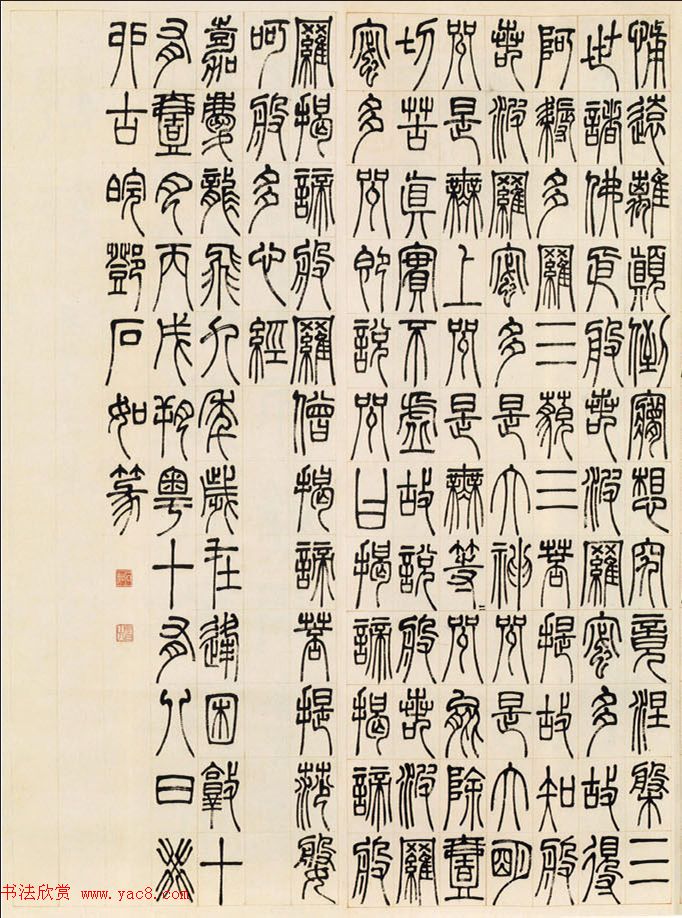 怖遠離顛倒夢想究竟涅槃三
世諸佛依般若波羅蜜多故得
阿耨多羅三藐三菩提故知般
若波羅蜜多是大神咒是大明
咒是無上咒是無等=咒能除壹
切苦真實不虛故說般若波羅
蜜多咒即說咒曰揭諦揭諦般
羅揭諦般羅僧揭諦菩提莎婆
呵般多心經
嘉慶龍飛九年歲在逢困敦十
有壹月丙戌朔粵十有八日癸
卯古皖鄧石如篆
书法欣赏 www.yac8.com